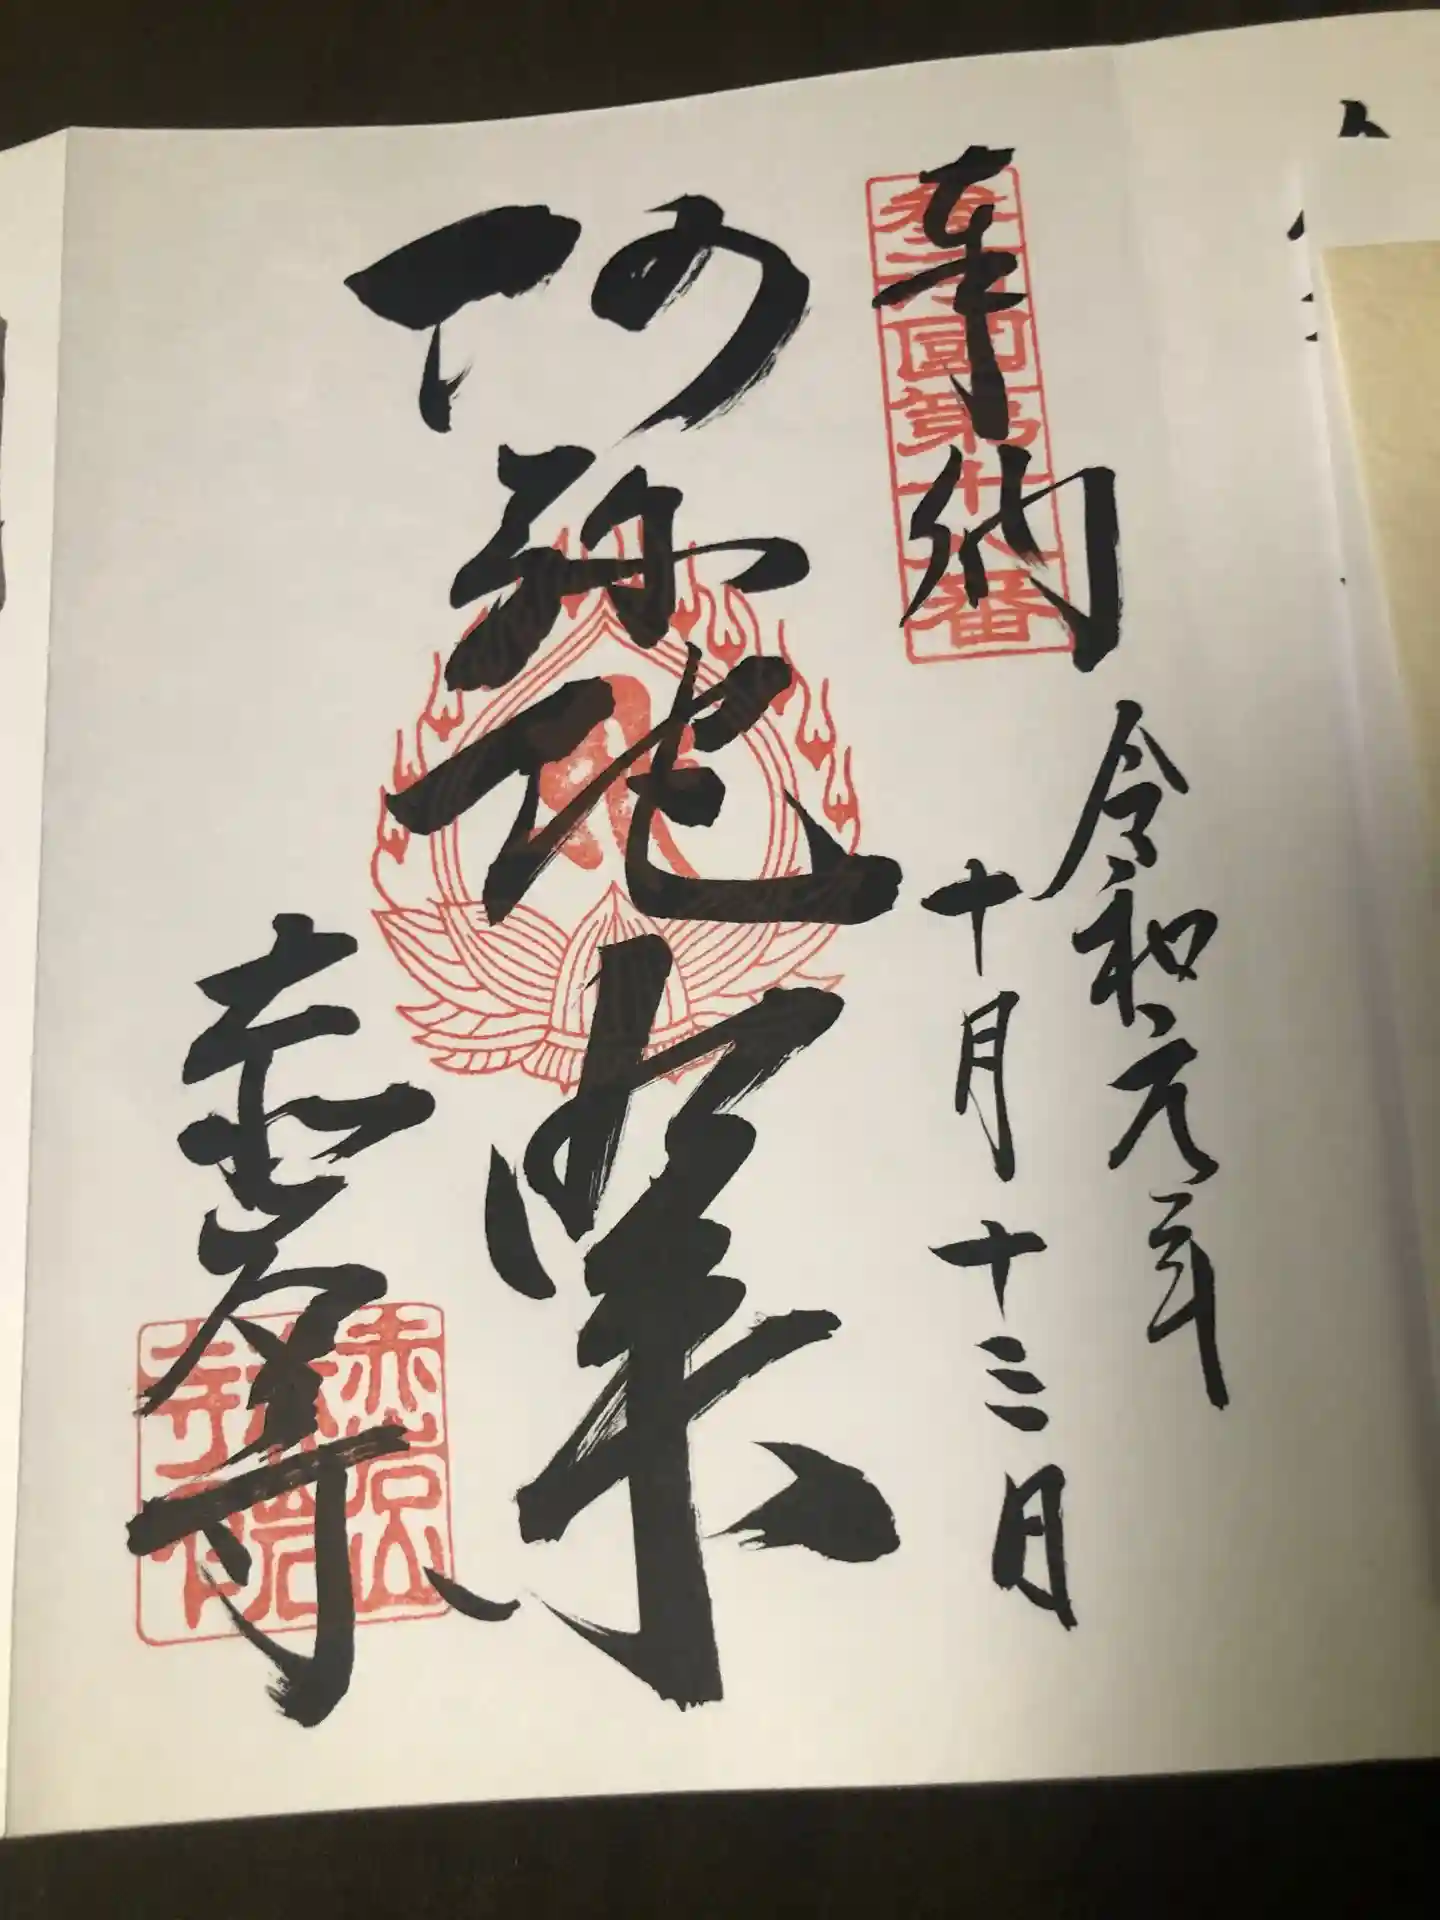 奉納
國第十八番
令和元年
十月十三日
阿弥陀如来
赤岩寺